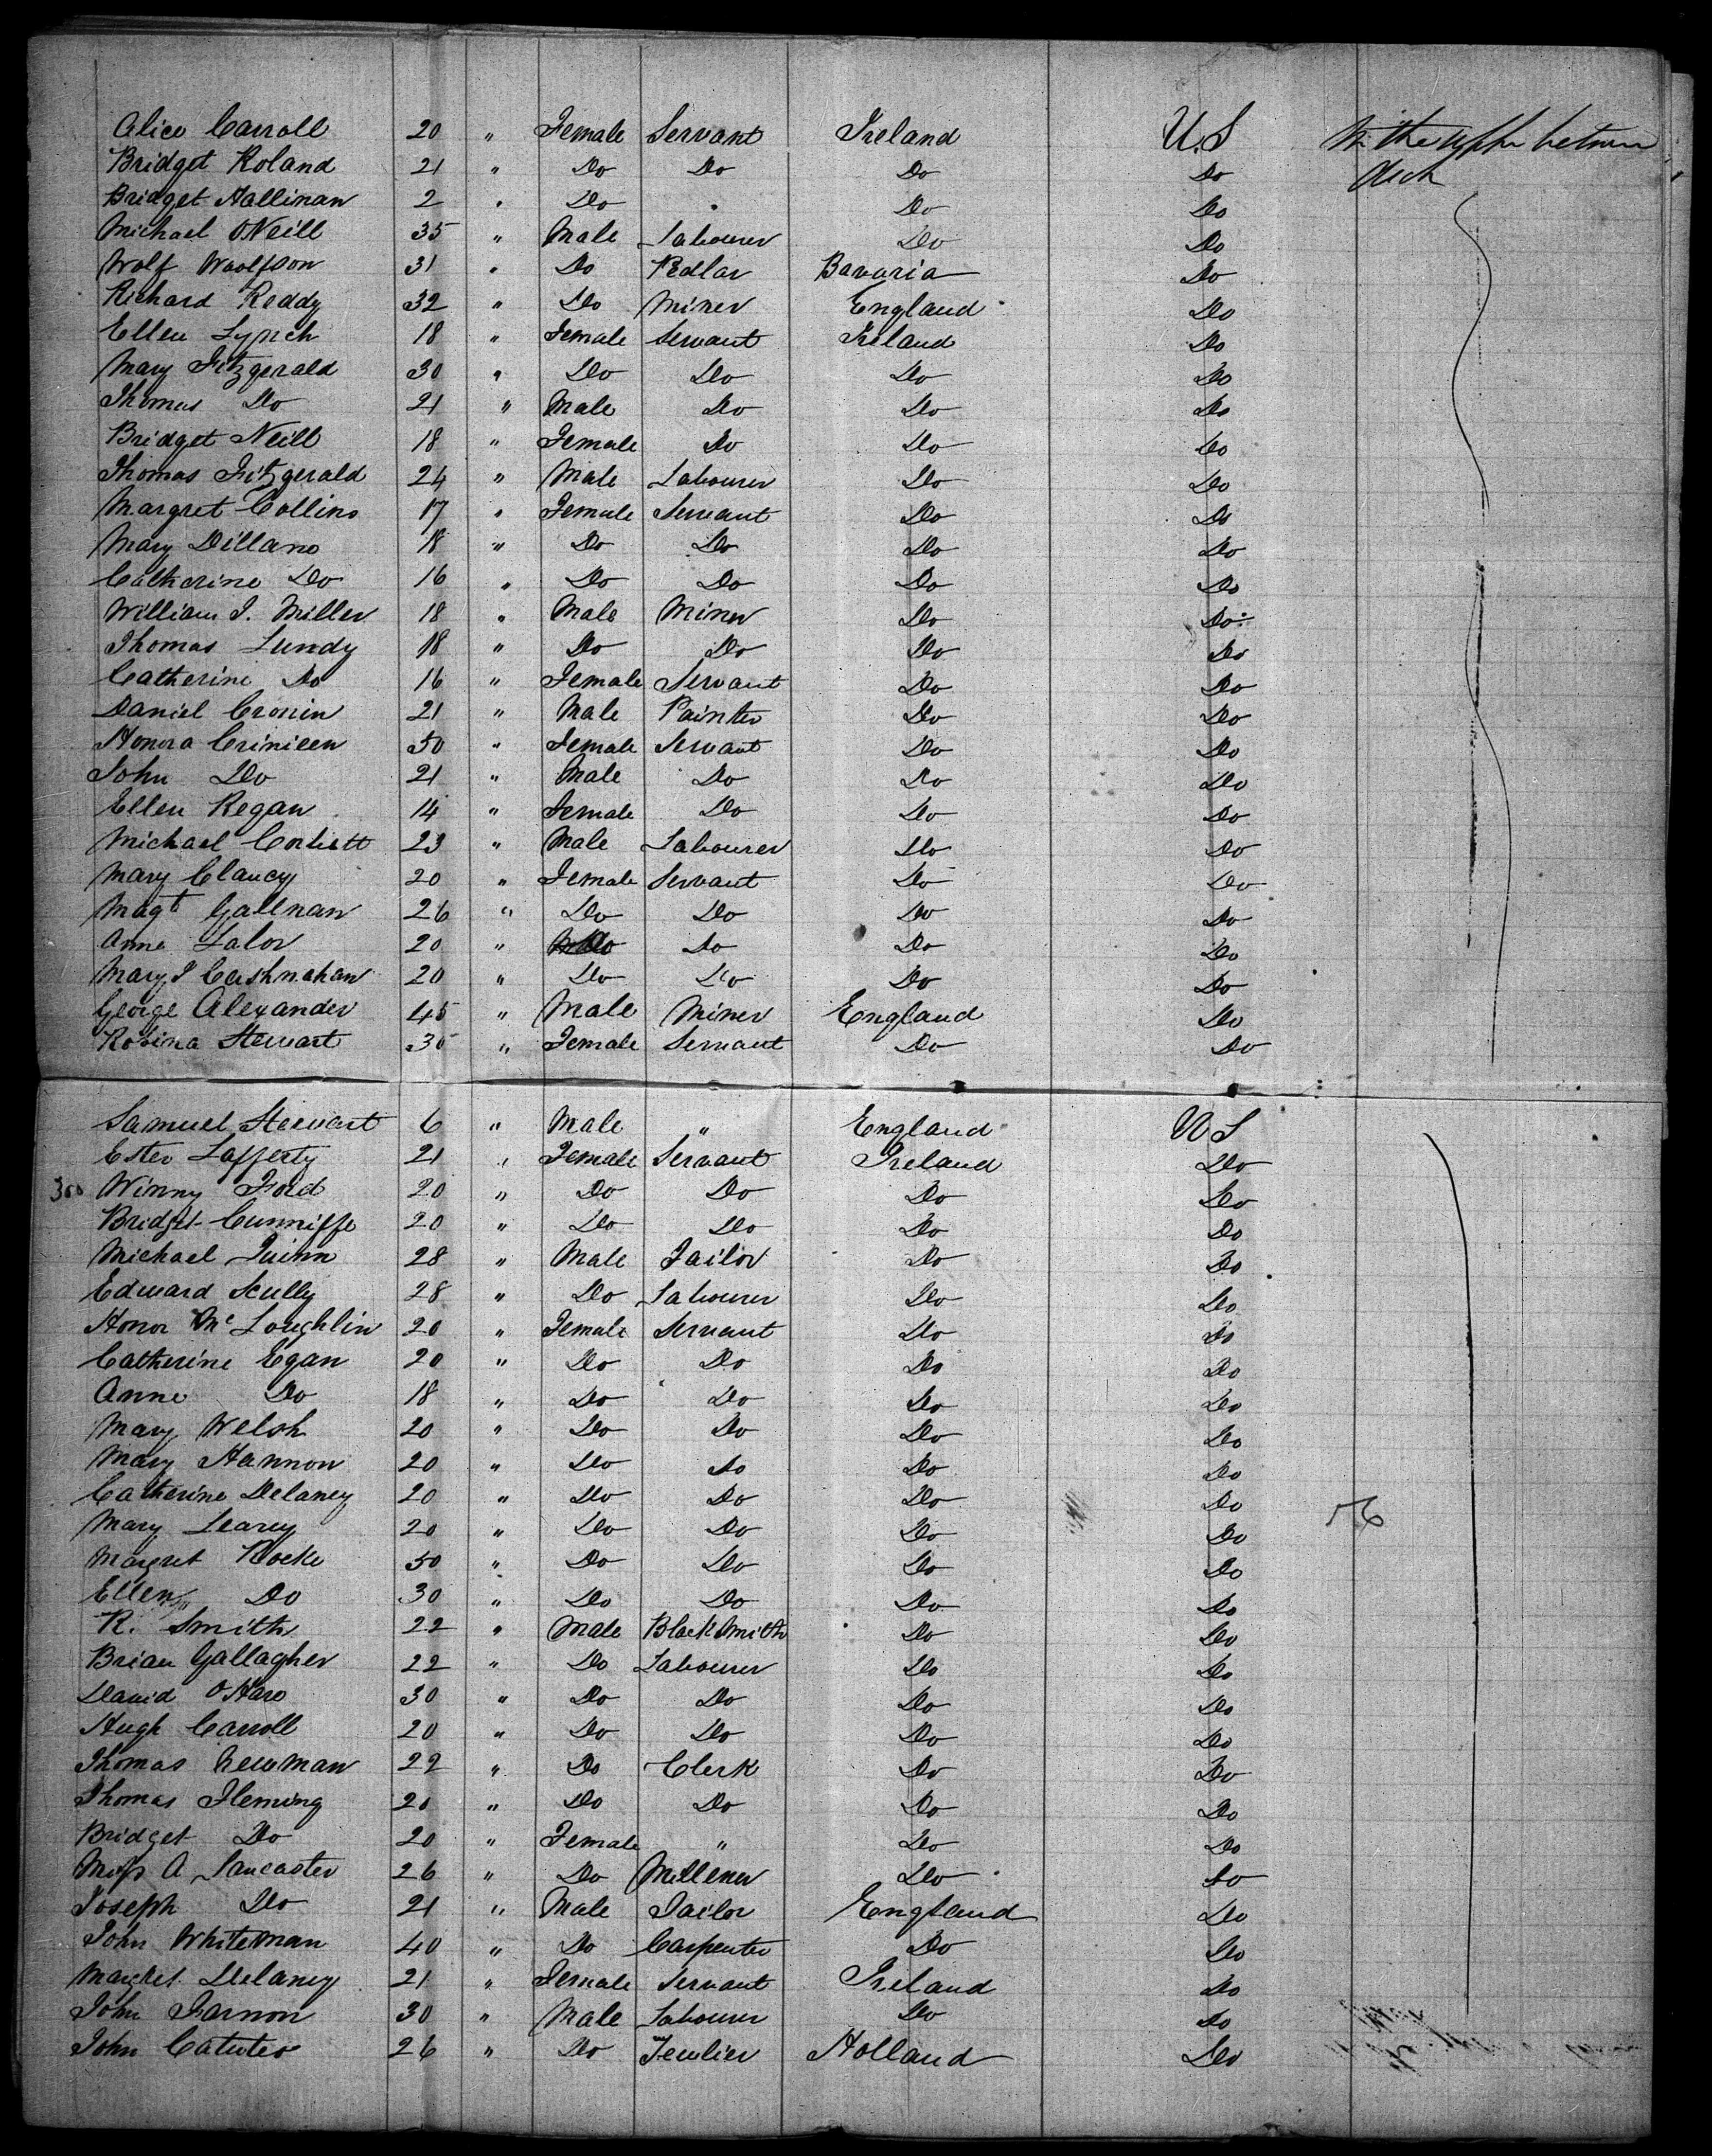 Alice Carroll 20 " Female Servant Ireland U.S In the upper between
Bridget Roland 21 " Do Do Do Do deck
Bridget Hallinan 2 " Do " Do Do
Michael ONeill 35 " Male Labourer Do Do
Wolf Woolfson 31 " Do Pedlar Bavaria Do
Richard Reddy 32 " Do Miner England Do
Ellen Lynch 18 " Female Servant Ireland Do
Mary Fitzgerald 30 " Do Do Do Do
Thomas Do 21 " Male Do Do Do
Bridget Neill 18 " Female Do Do Do
Thomas Fitzgerald 24 " Male Labourer Do Do
Margret Collins 17 " Female Servant Do Do
Mary Dillano 18 " Do Do Do Do
Catherine Do 16 " Do Do Do Do
William J. Miller 18 " Male Miner Do Do
Thomas Lundy 18 " Do Do Do Do
Catherine Do 16 " Female Servant Do Do
Daniel Cronin 21 " Male Painter Do Do
Honora Crinieen 50 " Female Servant Do Do
John Do 21 " Male Do Do Do
Ellen Regan 14 " Female Do Do Do
Michael Corbett 23 " Male Labourer Do Do
Mary Clancy 20 " Female Servant Do Do
Magt Gallnan 26 " Do Do Do Do
Anne Lalor 20 " Do Do Do Do
Mary J Cushnahan 20 " Do Do Do Do
George Alexander 45 " Male Miner England Do
Robina Stewart 30 " Female Servant Do Do
Samuel Stewart 6 " Male " England U S
Ester Lafferty 21 " Female Servant Ireland Do
300 Winny Ford 20 " Do Do Do Do
Bridget Cunniffe 20 " Do Do Do Do
Michael Quinn 28 " Male Tailor Do Do
Edward Scully 28 " Do Labourer Do Do
Honor McLoughlin 20 " Female Servant Do Do
Catherine Egan 20 " Do Do Do Do
Anne Do 18 " Do Do Do Do
Mary Welsh 20 " Do Do Do Do
Mary Hannon 20 " Do Do Do Do
Catherine Delaney 20 " Do Do Do Do 56
Mary Learey 20 " Do Do Do Do
Margret Rocke 50 " Do Do Do Do
Ellen Do 30 " Do Do Do Do
R. Smith 22 " Male BlackSmith Do Do
Brian Gallagher 22 " Do Labourer Do Do
David OHare 30 " Do Do Do Do
Hugh Carroll 20 " Do Do Do Do
Thomas Newman 22 " Do Clerk Do Do
Thomas Fleming 20 " Do Do Do Do
Bridget Do 20 " Female " Do Do
Miss A Lancaster 26 " Do Millener Do Do
Joseph Do 21 " Male Tailor England Do
John Whiteman 40 " Do Carpenter Do Do
Margret Delaney 21 " Female Servant Ireland Do
John Farnon 30 " Male Labourer Do Do
John Catuteo 26 " Do Jewlier Holland Do